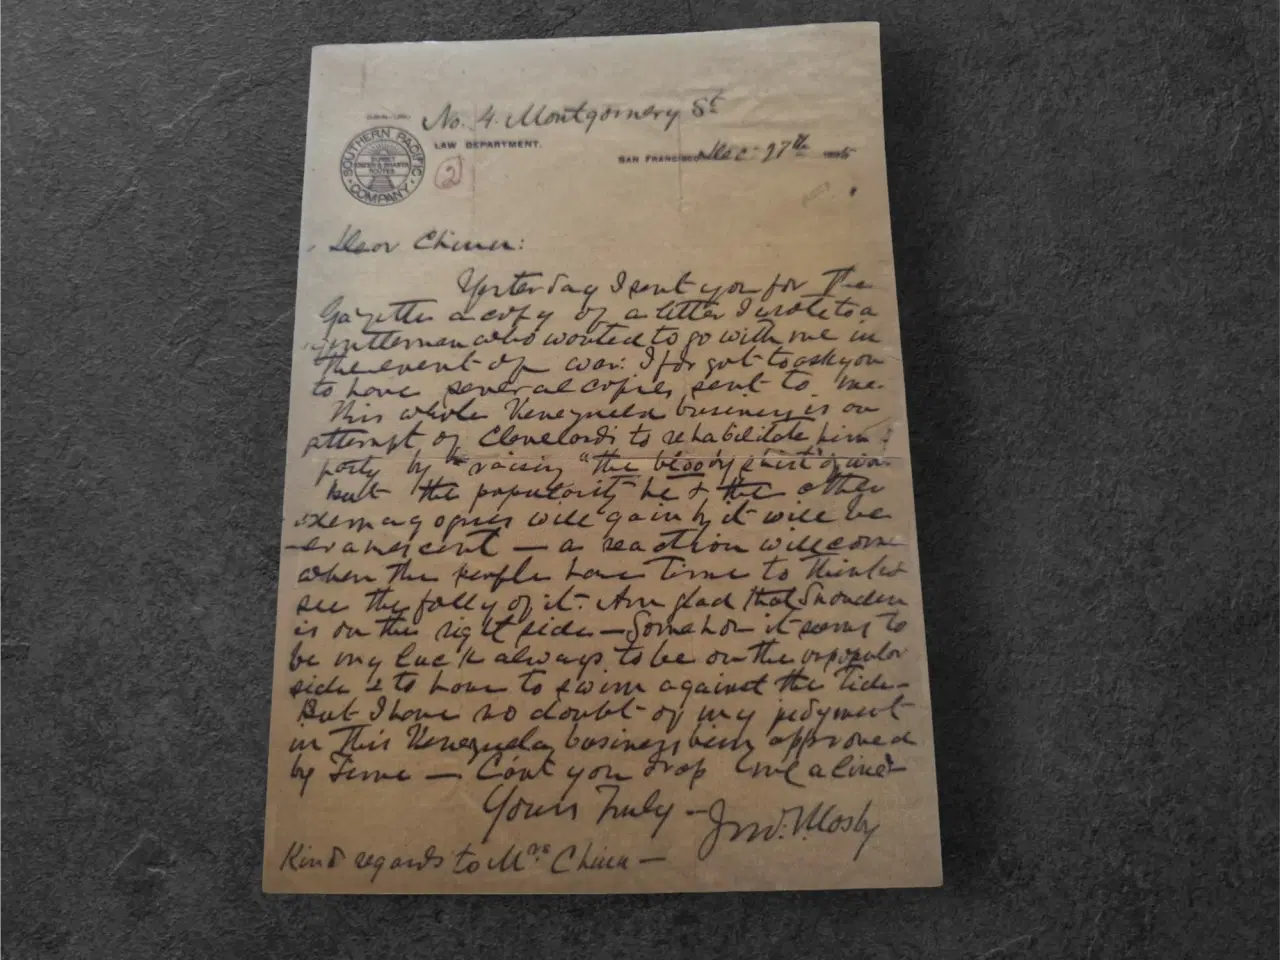 No. 4. Montgomery St
LAW DEPARTMENT.
SOUTHERN PACIFIC COMPANY
SAN FRANCISCO, Dec. 27th 1895
(2)
Dear Chinn:
Yesterday I sent you for the
Gazette a copy of a letter I wrote to a
gentleman who wanted to go with me in
the event of war: I forgot to ask you
to have several copies sent to me.
This whole Venezuela business is an
attempt of Cleveland's to rehabilitate him &
party by "raising "the bloody shirt" of war
But the popularity he & the other
demagogues will gain by it will be
evanescent — a reaction will come
when the people have time to think &
see the folly of it. Am glad that Snowden
is on the right side — Somehow it seems to
be my luck always to be on the unpopular
side & to have to swim against the tide —
But I have no doubt of my judgment
in this Venezuelan business being approved
by time — Can't you drop me a line?
Yours Truly —
Jno. S. Mosby
Kind regards to Mrs Chinn —